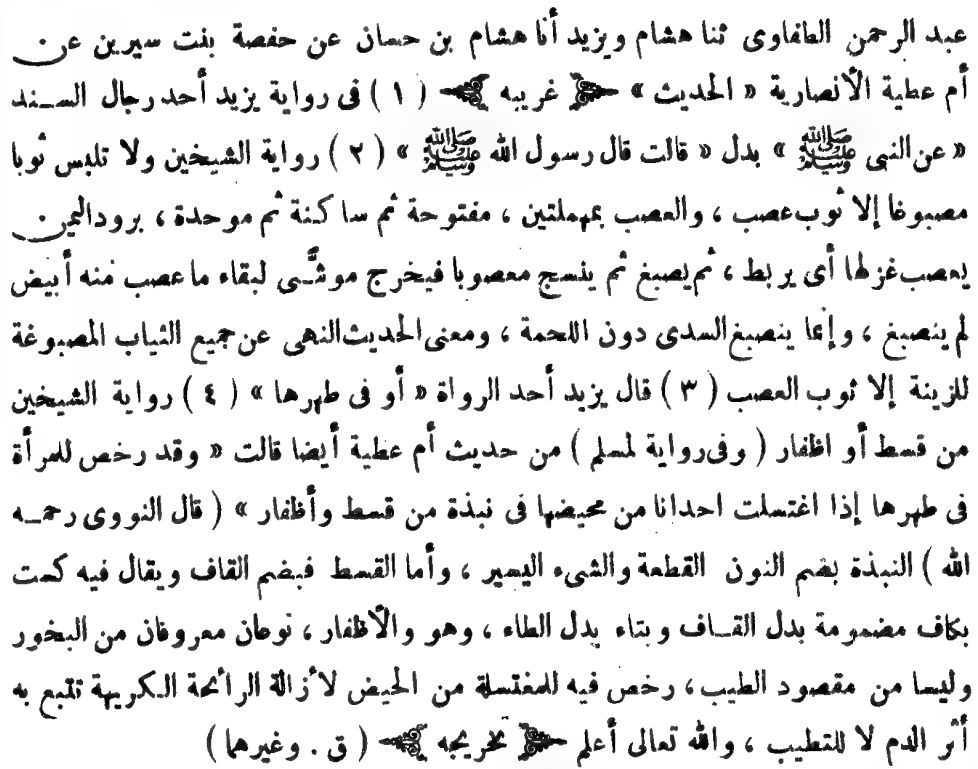 عبد الرحمن الطفاوى ثنا هشام ويزيد أنا هشام بن حسان عن حفصة بنت سيرين عن
أم عطية الأنصارية « الحديث » ﴿ غريبه ﴾ ( ١ ) فى رواية يزيد أحد رجال السـند
« عن النبى ﷺ » بدل « قالت قال رسول الله ﷺ » ( ٢ ) رواية الشيخين ولا تلبس ثوبا
مصبوغا إلا ثوب عصب ، والعصب بمهملتين ، مفتوحة ثم ساكنة ثم موحدة ، برود اليمن
يعصب غزلها أى يربط ، ثم يصبغ ثم ينسج معصوبا فيخرج موشَّـى لبقاء ما عصب منه أبيض
لم ينصبغ ، وإنما ينصبغ السدى دون اللحمة ، ومعنى الحديث النهى عن جميع الثياب المصبوغة
للزينة إلا ثوب العصب ( ٣ ) قال يزيد أحد الرواة « أو فى طهرها » ( ٤ ) رواية الشيخين
من قسط أو اظفار ( وفى رواية لمسلم ) من حديث أم عطية أيضا قالت « وقد رخص للمرأة
فى طهرها إذا اغتسلت احدانا من محيضها فى نبذة من قسط وأظفار » ( قال النووى رحمـه
الله ) النبذة بضم النون القطعة والشىء اليسير ، وأما القسط فبضم القاف ويقال فيه كست
بكاف مضمومة بدل القـاف وبتاء بدل الطاء ، وهو والأظفار ، نوعان معروفان من البخور
وليسا من مقصود الطيب ، رخص فيه للمغتسلة من الحيض لأزالة الرائحة الكريهة تتبع به
أثر الدم لا للتطيب ، والله تعالى أعلم ﴿ تخريجه ﴾ ( ق . وغيرهما )